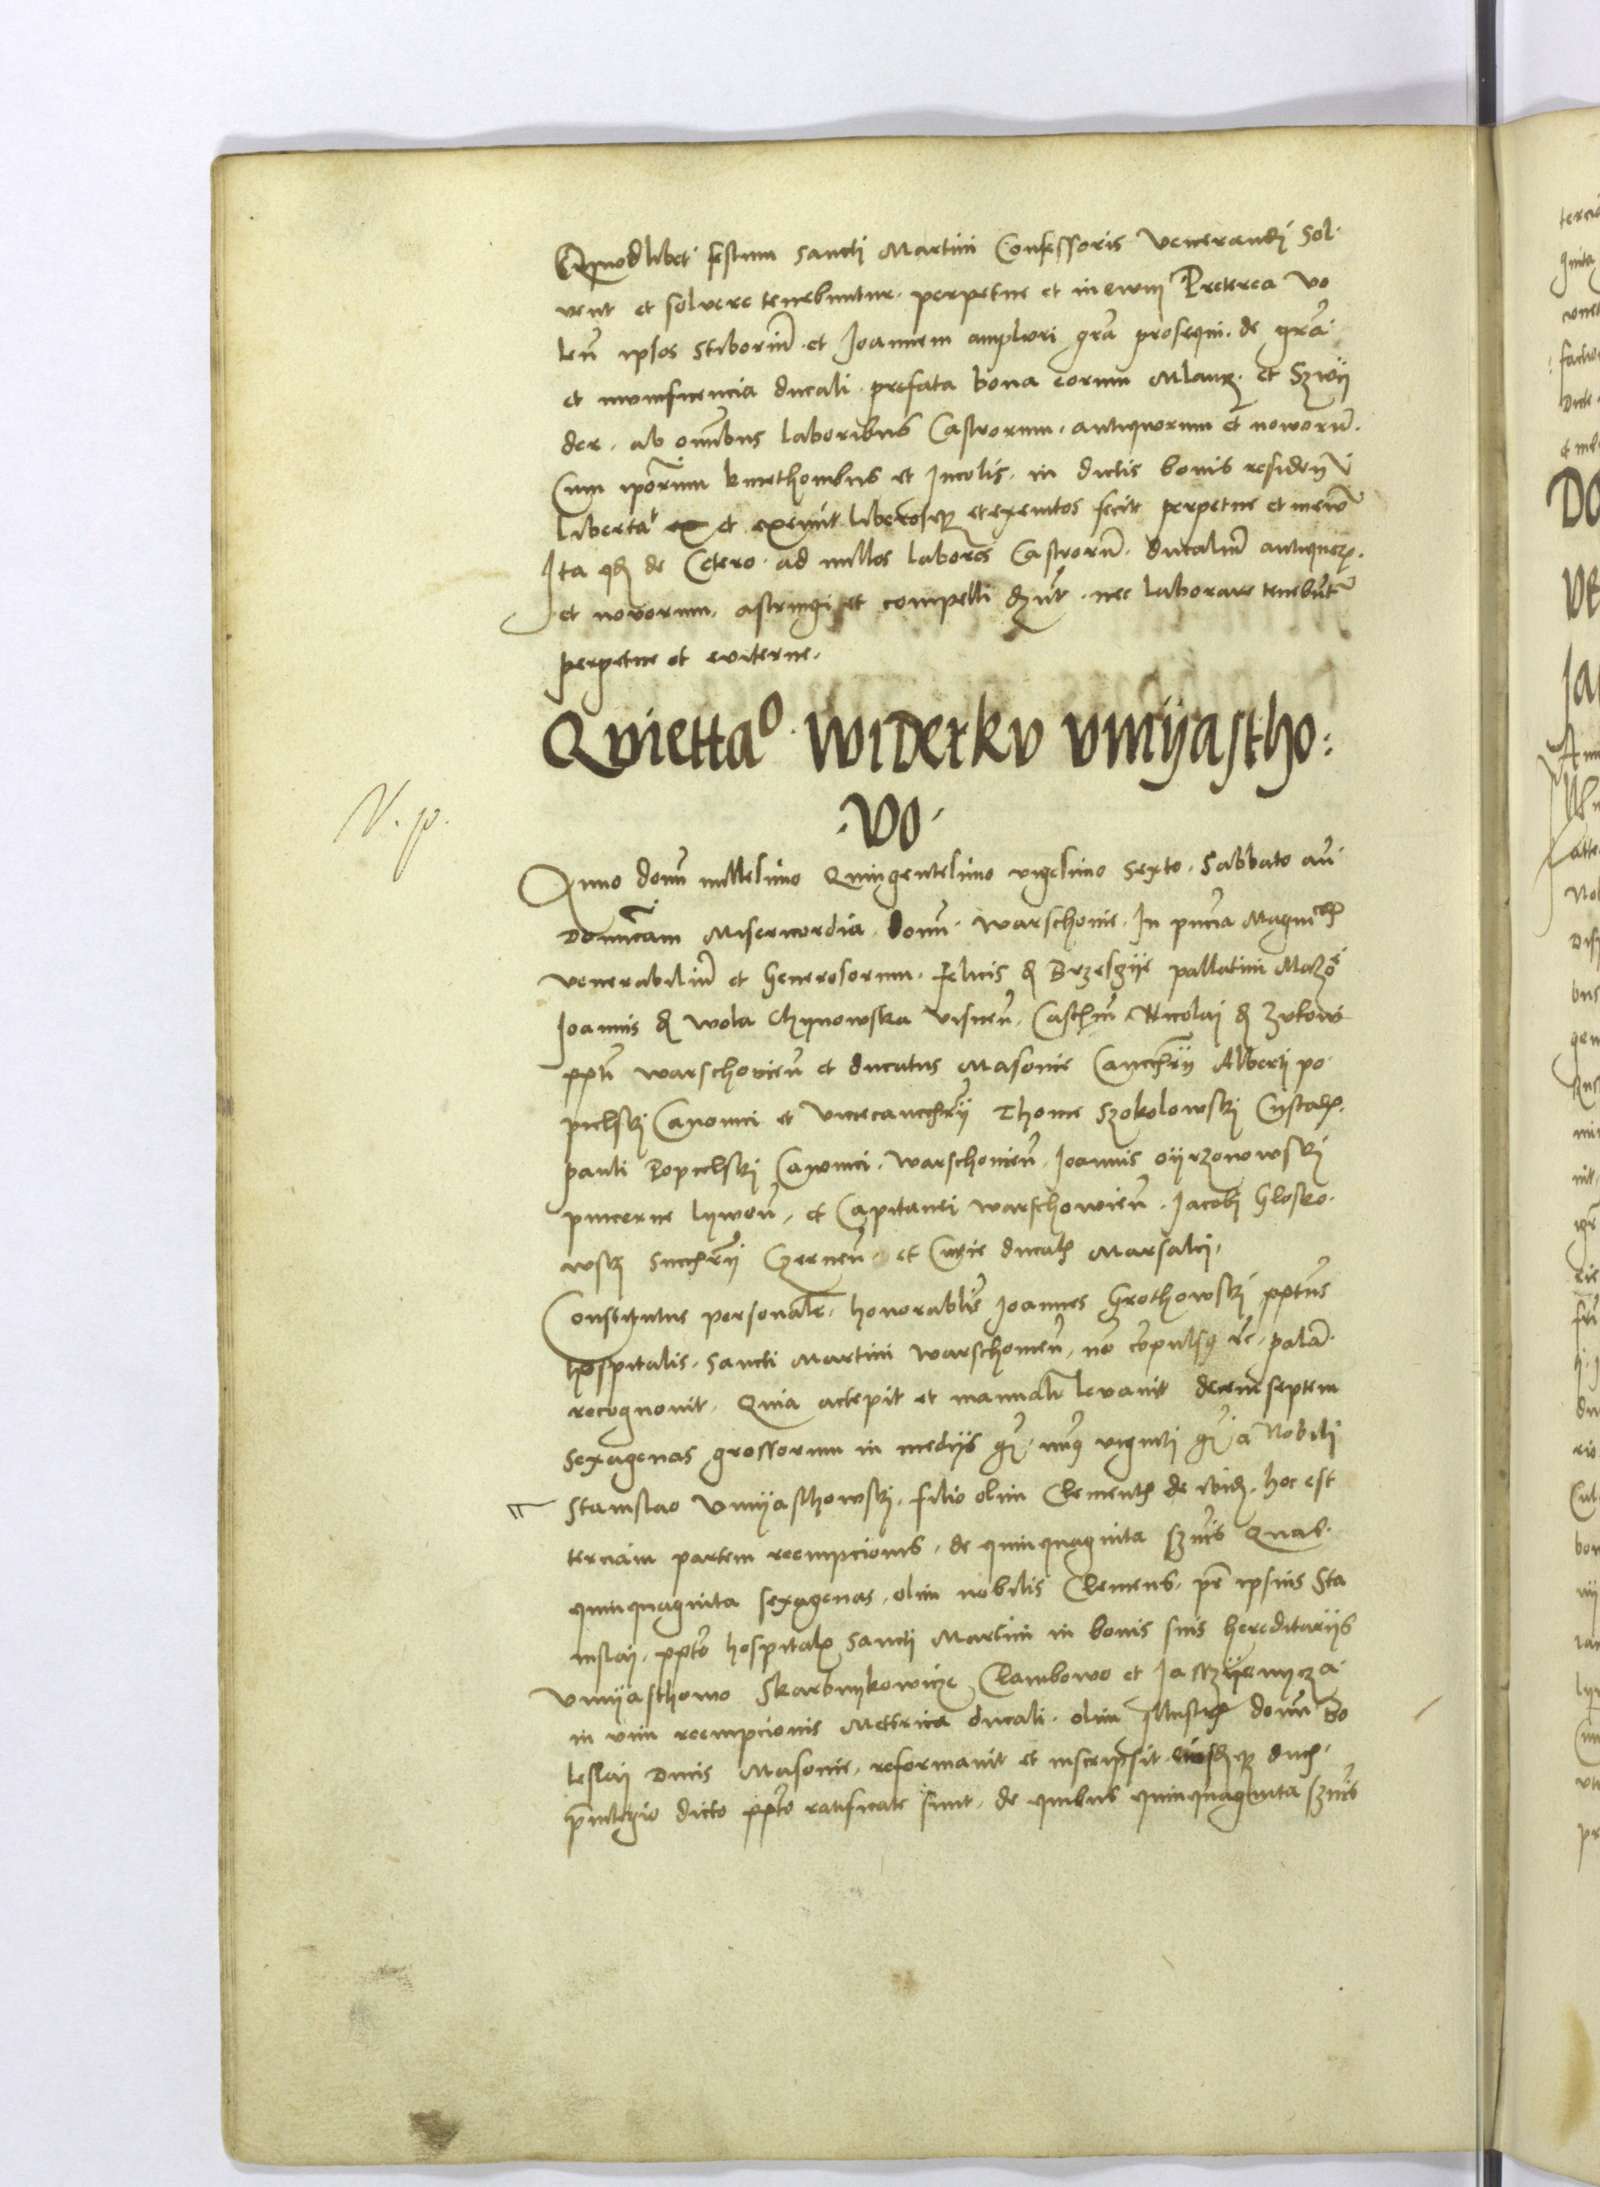 Quodlibet festum sancti Martini Confessoris Venerandi Sol-
vent et solvere tenebuntur perpetue et in ewm Preterea vo
len ipsos Stiborium et Joannem ampliori gra prosequi de gra
et munificencia ducali prefata bona eorum et Szwy
der ab omnibus laboribus Castrorum antiquorum et noworum
Cum ipsorum kmethonibus et Incolis in dictis bonis residen
libertat et exemit liberosque et exemtos fecit perpetue et inewm
Ita qd de Cetero ad nullos labores Castrorum ducalium antiquorum
et novorum astringi et compelli dnt nec laborare tenebuntur
perpetue et eviterne.
Quietta° Widerku Vmyastho:
·vo·
N. p.
Anno domi millesimo Quingentesimo vigesimo Sexto Sabbato an
Dominicam Misericordia Domi Warschovie In pncia Magnicorum
venerabilium et Generosorum Felicis de Brzeszye pallatini Mazo
Joannis de Wola Chynowska Visnen Casthni Nicolai de Zukow
ppti Warschovien et ducatus Masovie Cancellarii Alberti po
pielski Canonici et Vicecancellarii Thome Szokolowski Custodis
Pauli Popielski Canonici Warschovien Joannis Oyrzonowski
pincerne Lywen et Capitanei Warschowien Jacobi Glosko
wski Succamerarii Czernen et Curie ducalis Marsalci
Constitutus personaliter honorabilis Joannes Grothowski pptus
hospitalis Sancti Martini Warschovien no compulsus re palam
recognovit Quia accepit et manualiter levavit decem septem
sexagenas grossorum in mediis gr no viginti gr a Nobili
Stanislao Vmyasthowski filio olim Clementis de ibidem hoc est
terciam partem reempcionis de quinquaginta sexagenis Quas
quinquaginta sexagenas olim nobilis Clemens pr ipsius Sta
nislai ppto hospitalis Sancti Martini in bonis suis hereditariis
Vmyasthowo Skarbnykowicze Clambowo et Jastrzyemycza
in vim reempcionis Metrica ducali olim Illustris domi Bo
leslai Ducis Masovie reformavit et inscripsit eiusdemque ducis
privilegio dicto ppto ratificate sunt de quibus quinquaginta sexagenis